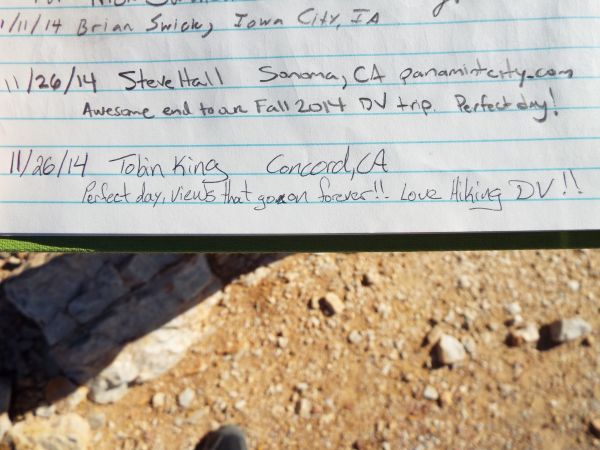 1/11/14 Brian Swick, Iowa City, IA
11/26/14 Steve Hall Sonoma, CA panamintcity.com
Awesome end to our Fall 2014 DV trip. Perfect day!
11/26/14 Tobin King Concord, CA
Perfect day, views that go on forever!! Love Hiking DV!!